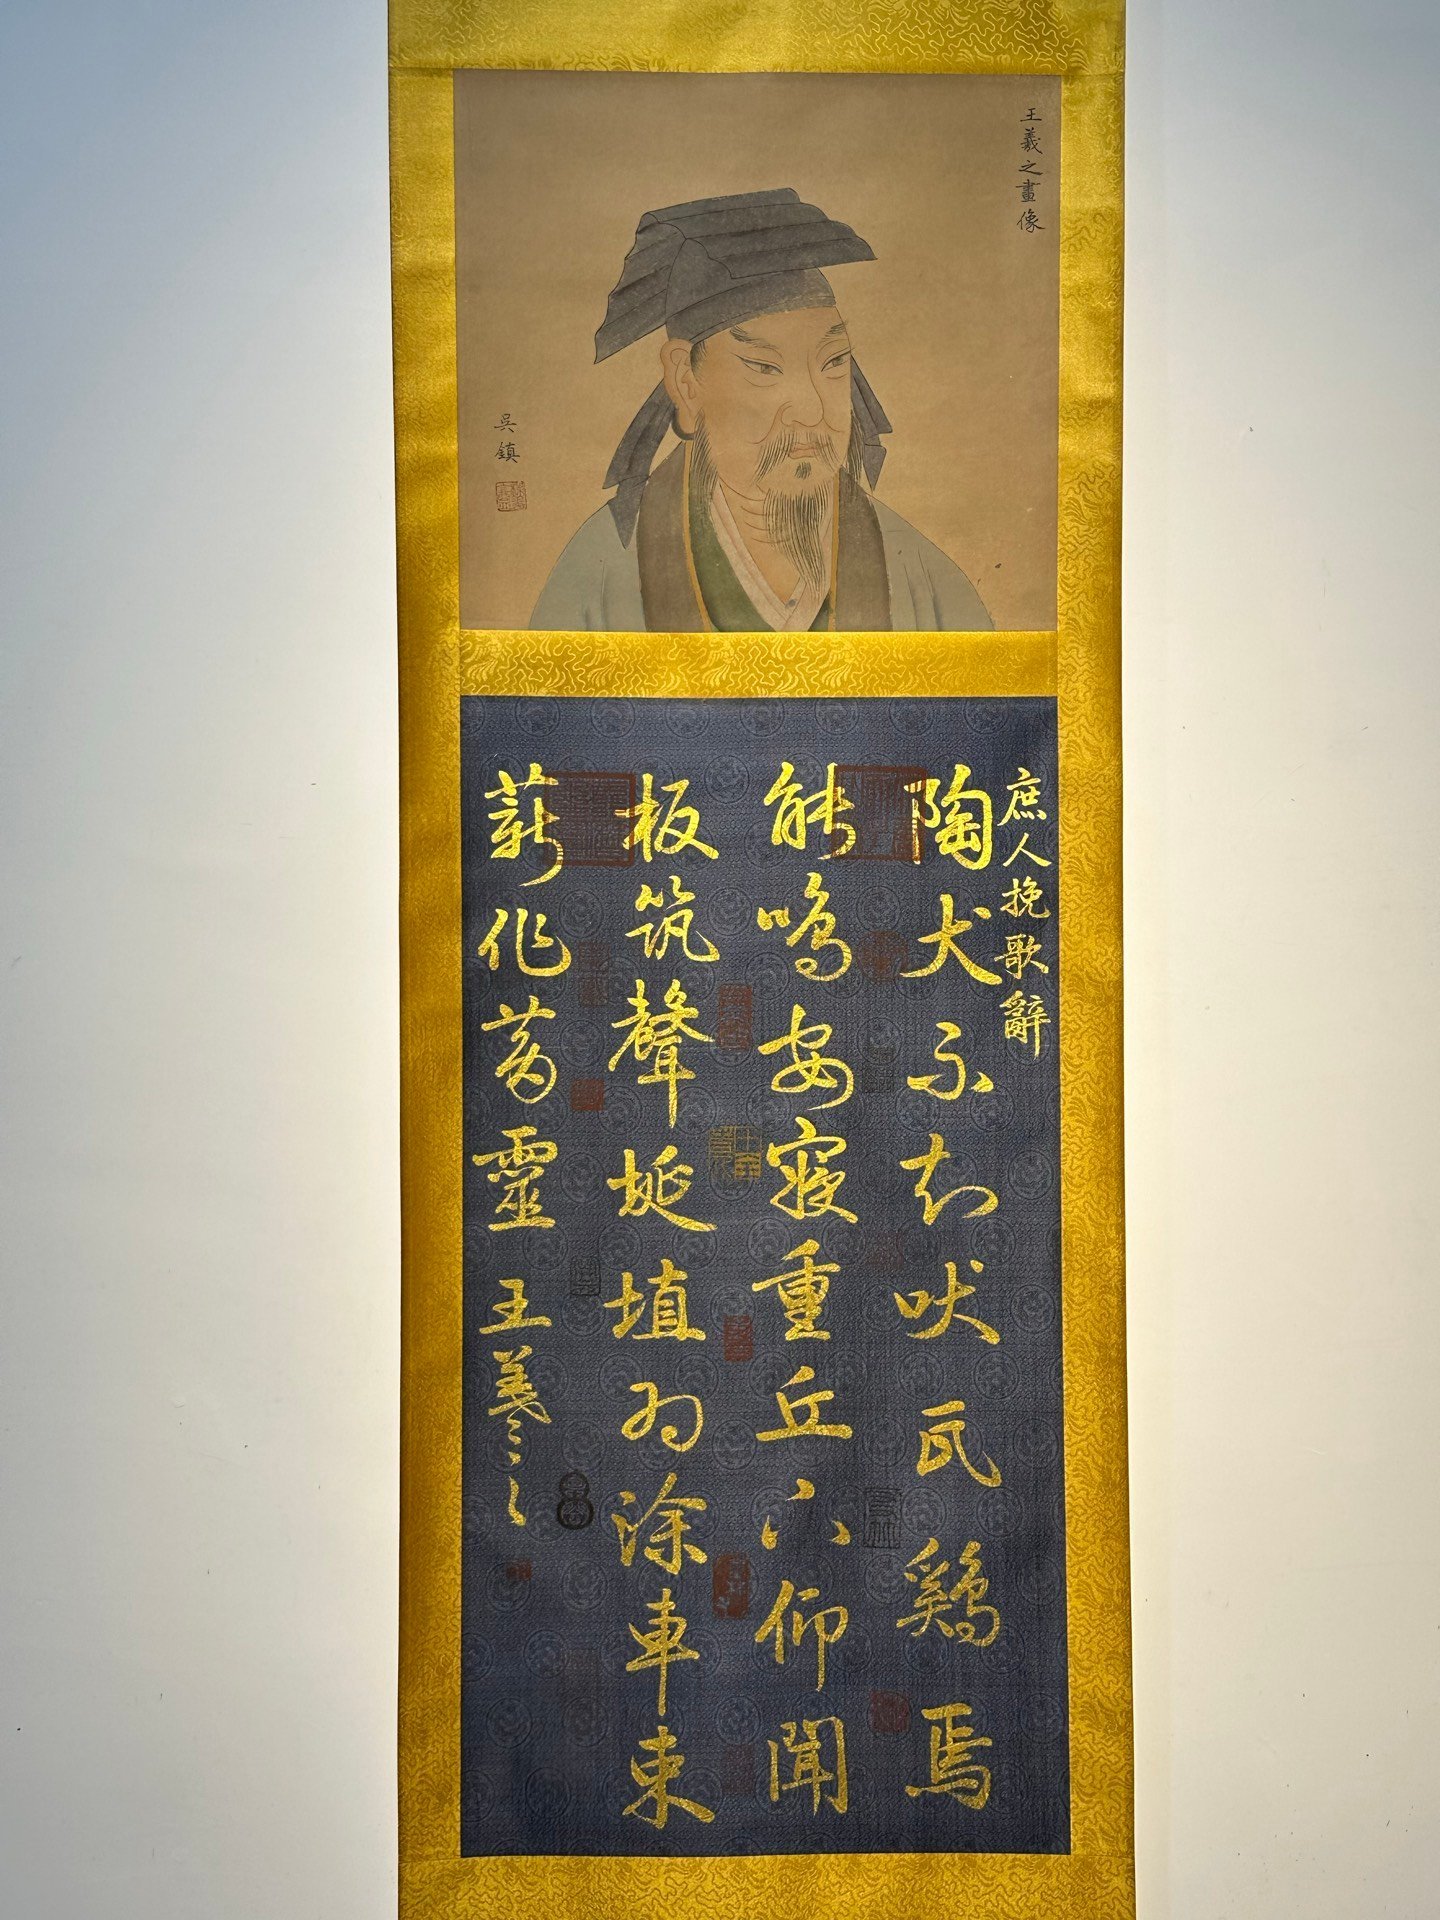 王羲之畫像
吳鎮
庶人挽歌辭
陶犬不知吠瓦鷄焉
能鳴安寢重丘下仰聞
板筑聲埏埴为涂車束
薪作芻靈
王羲之